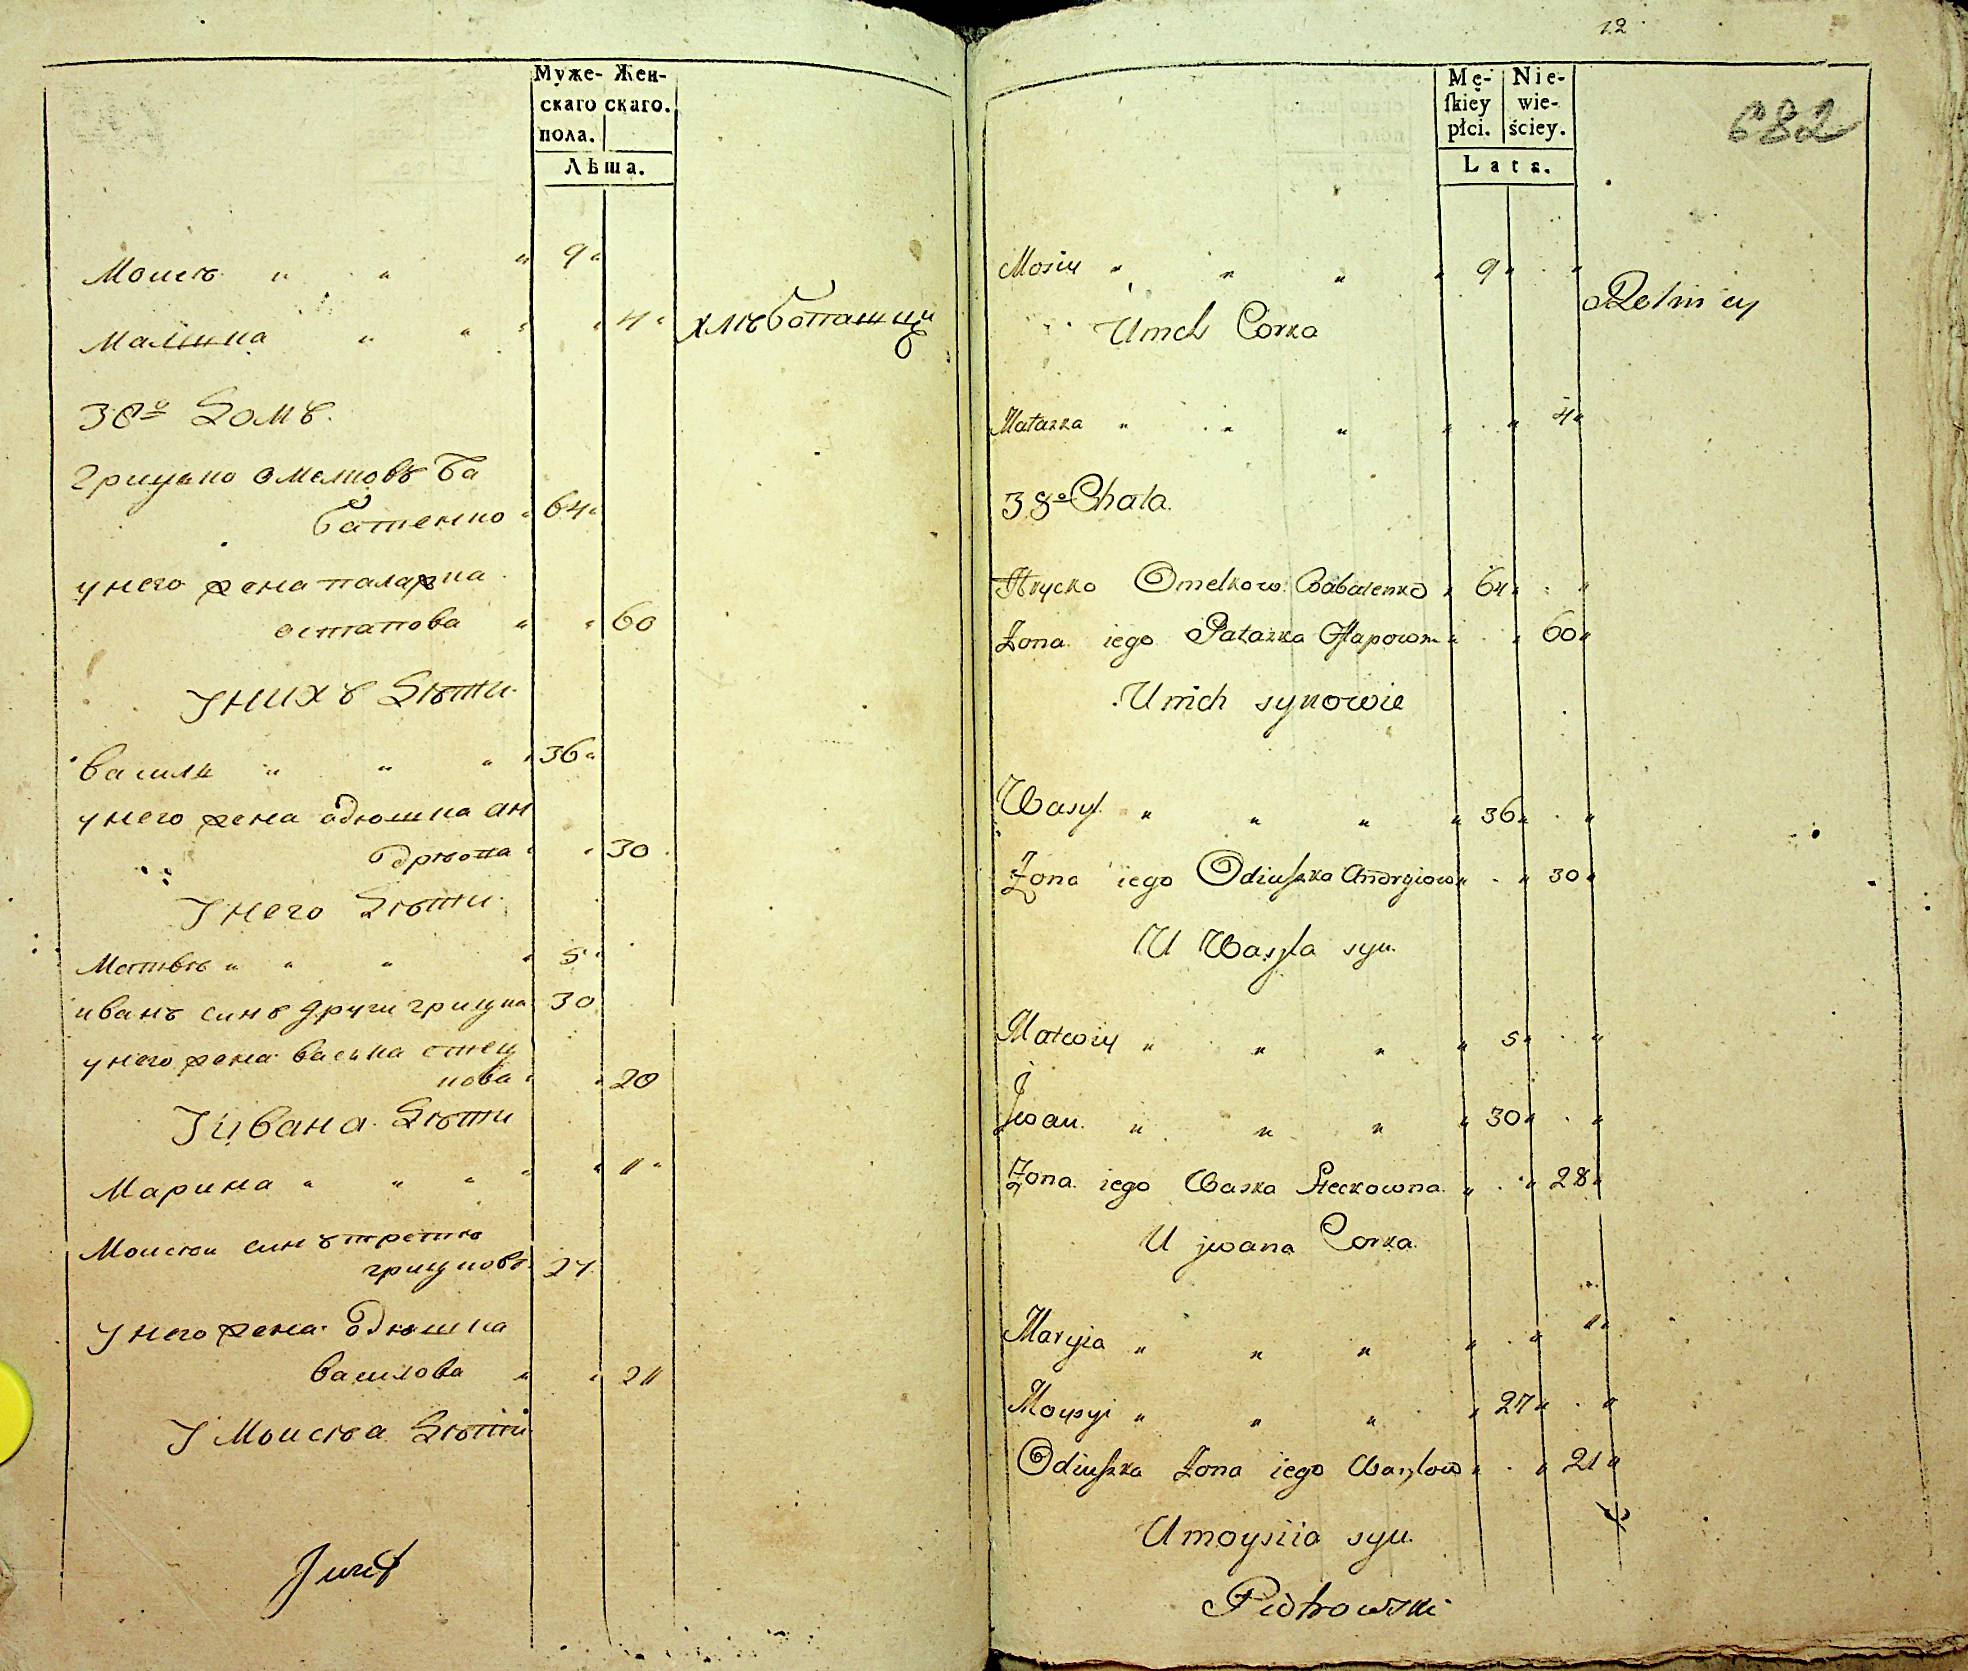 Муже- Жен-
скаго скаго.
пола.
Лѣта.
Моисѣ " " " 9 "
Малшка " " " " 4 " хлѣбопашцы
38º Домъ.
Грицко Омелковъ Ба
батенко " 64 "
у него жена палажка
остапова " " 60
У нихъ Дѣти.
василь " " " " 36 "
у него жена одюшка ан
дрѣова " " 30
У него Дѣти.
Матвѣ " " " " 5 "
иванъ синъ други грицка 30
у него жена васька стец
кова " " 20
У ивана Дѣти
Марина " " " " " 11 "
Моисѣи синъ третѣ
грицковъ 27
у него жена Одюшка
васиlова " " 21
У Моисѣа Дѣти
12
682
Mę- Nie-
ſkiey wie-
płci. ściey.
Lata.
Mosiy " " " " 9 " . "
Retnicy
U nich Corka
Małaszka " " " " . " 4 "
38º Chata.
Hrycko Omelkow Babatenko " 64 " . "
Żona iego Pałaszka Ostapowna " . " 60 "
U nich synowie
Wasyl " " " " 36 " . "
Żona iego Odiuſzka Andryiow " . " 30 "
U Wasyla syn.
Matwiy " " " " 5 " . "
Jwan. " " " " 30 " . "
Żona iego Waska Steckowna " . " 28 "
U jwana Corka.
Maryia " " " " . " 11 "
Moysyi " " " " 27 " . "
Odiuſzka żona iego Wasylow " . " 21 "
U moysiia syn.
Piotrowski